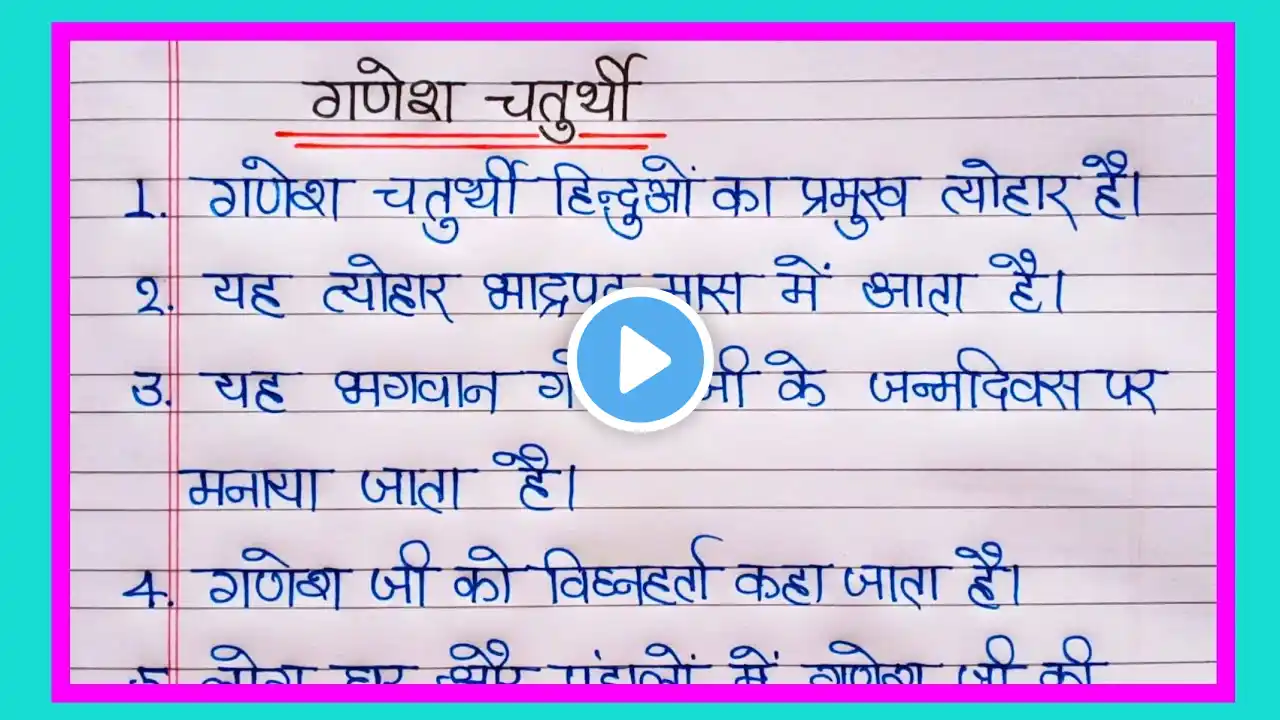 गणेश चतुर्थी
1. गणेश चतुर्थी हिन्दुओं का प्रमुख त्योहार है।
2. यह त्योहार भाद्रपद मास में आता है।
3. यह भगवान जी के जन्मदिवस पर
मनाया जाता है।
4. गणेश जी को विघ्नहर्ता कहा जाता है।
5. लोग घर और पंडालों में गणेश जी की